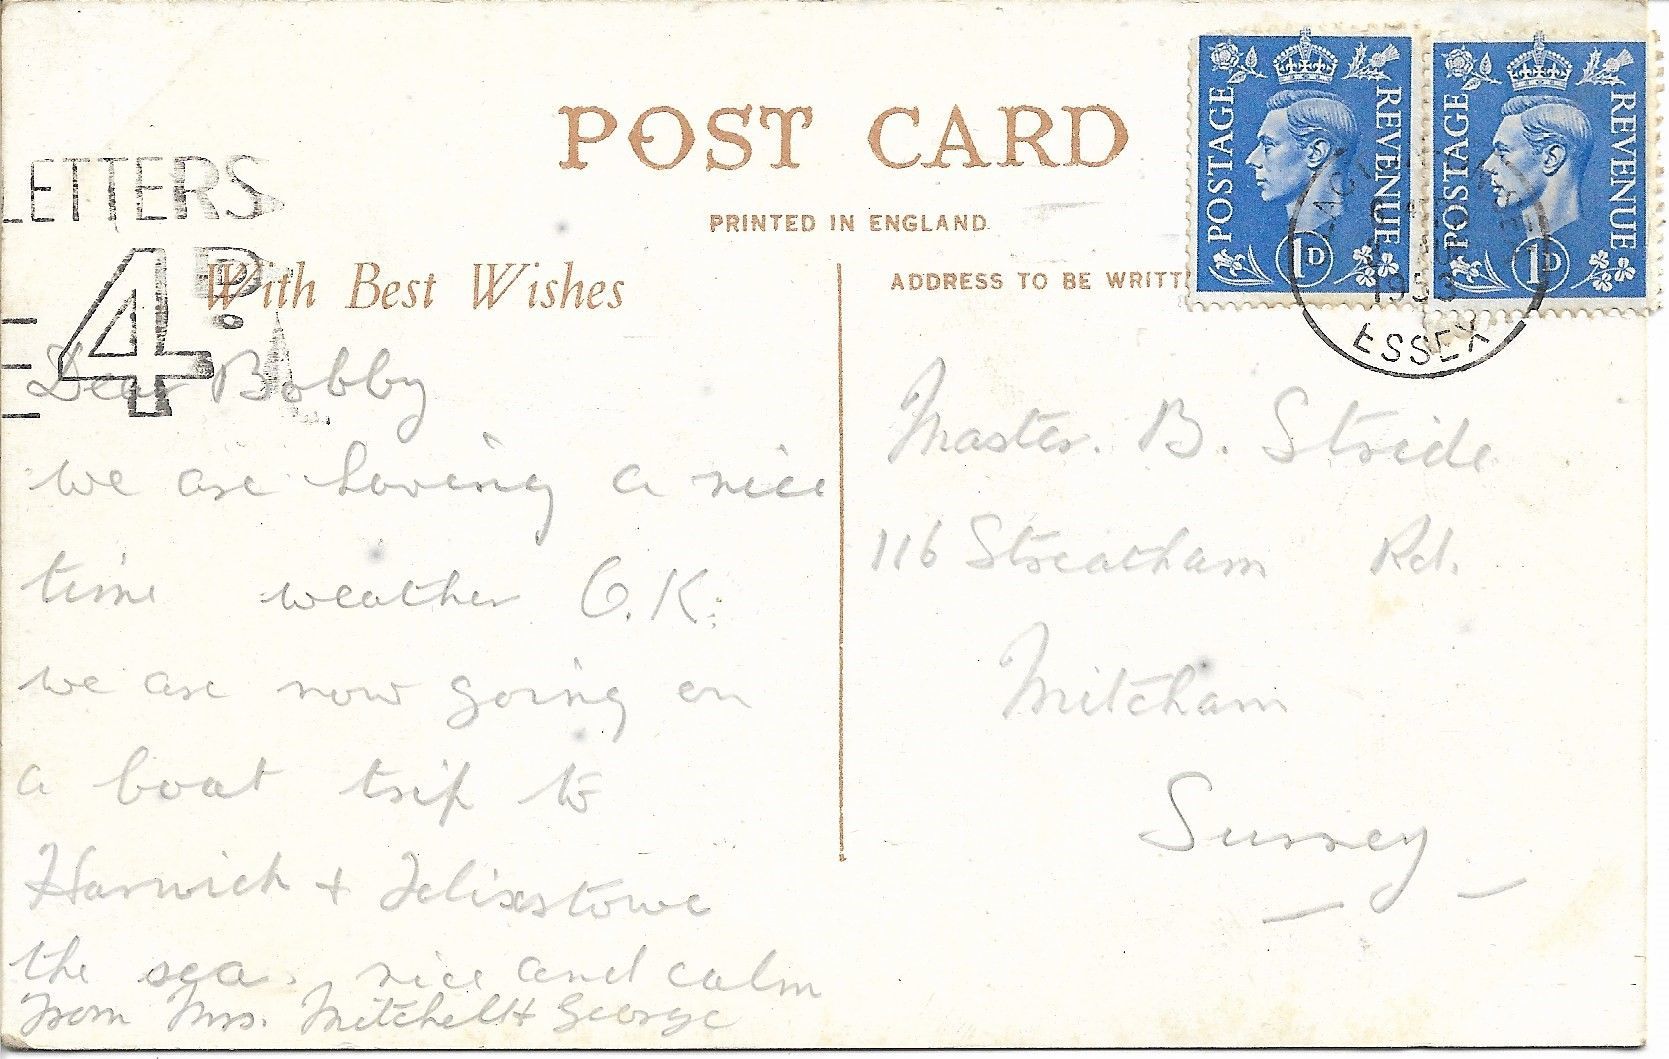 POST CARD
PRINTED IN ENGLAND.
LETTERS
4D.
With Best Wishes
ADDRESS TO BE WRITT
POSTAGE REVENUE
1D
POSTAGE REVENUE
1D
1953
ESSEX
Dear Bobby
we are having a nice
time weather O.K.
we are now going on
a boat trip to
Harwich + Felixstowe
the sea. nice and calm
from Mrs. Mitchell + George
Master. B. Stride
116 Streatham Rd.
Mitcham
Surrey